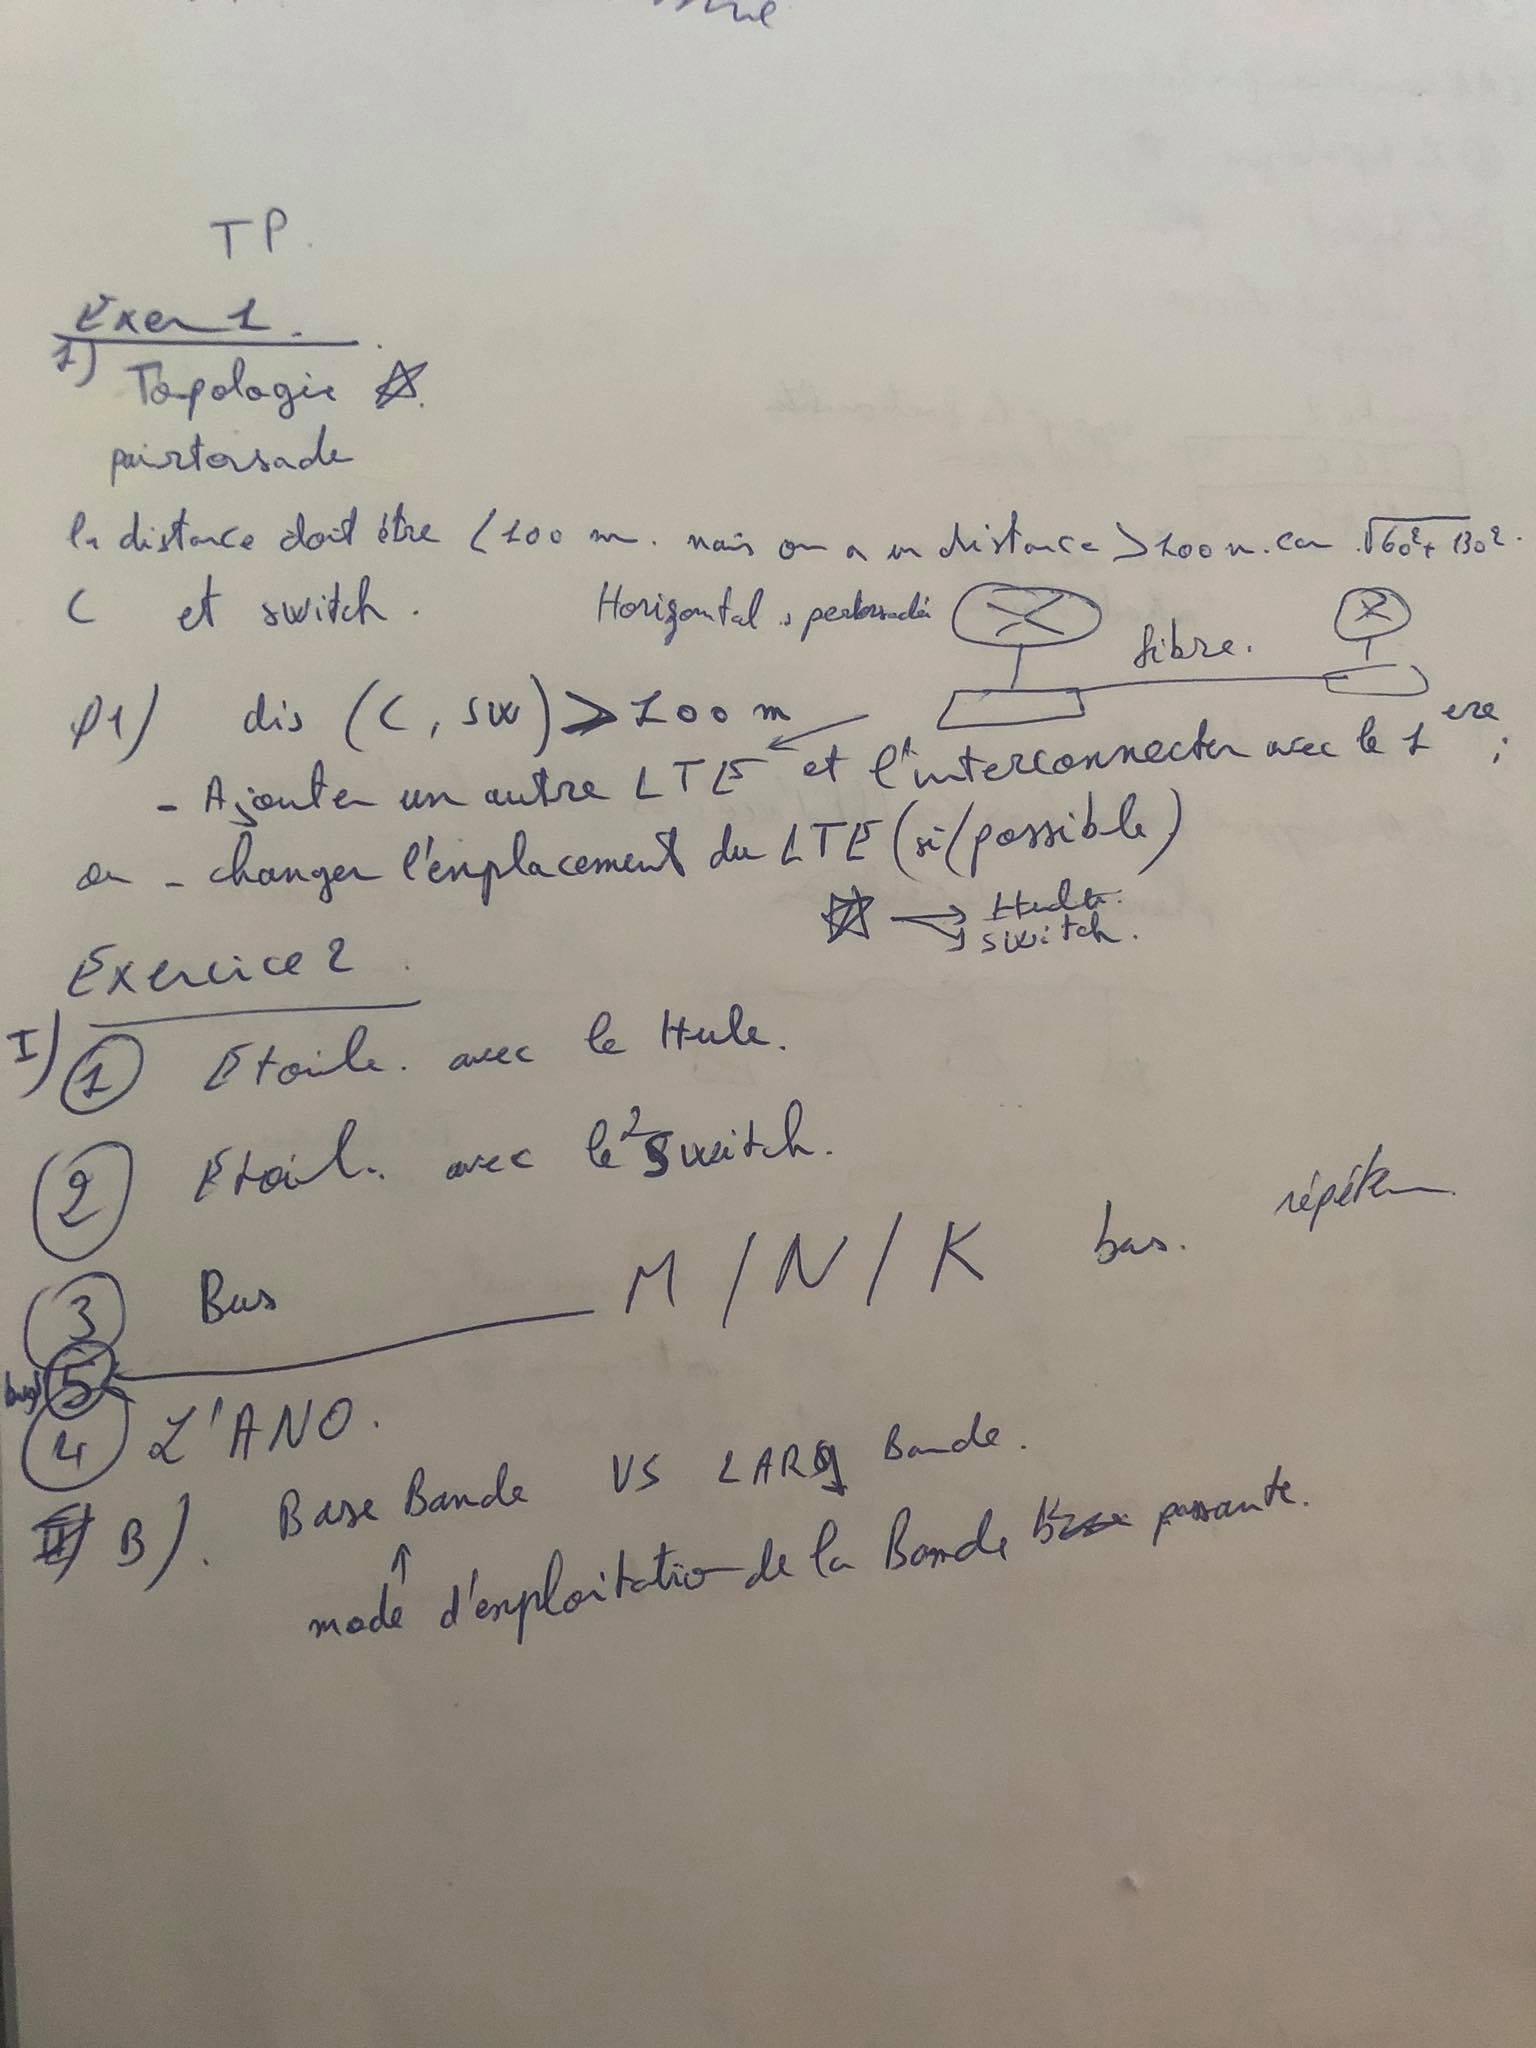 TP.
Exer 1.
1) Topologie ☆.
pairtorsade
la distance doit être < 100 m. mais on a un distance > 100 m. car √60²+130².
C et switch.
Horizontal
fibre.
P1) dis (C, SW) > 100 m
- Ajouter un autre LTE et l'interconnecter avec le 1ere ;
ou - changer l'emplacement du LTE (si/possible)
☆ → Hub.
switch.
Exercice 2.
I) 1 Etoile. avec le Hub.
2 Etoil. avec le 2 Switch.
3 Bus
M / N / K bus. répéteur
bus 5
4 L'ANO.
B). Base Bande VS LARg Bande.
↑
mode d'exploitation de la Bande passante.